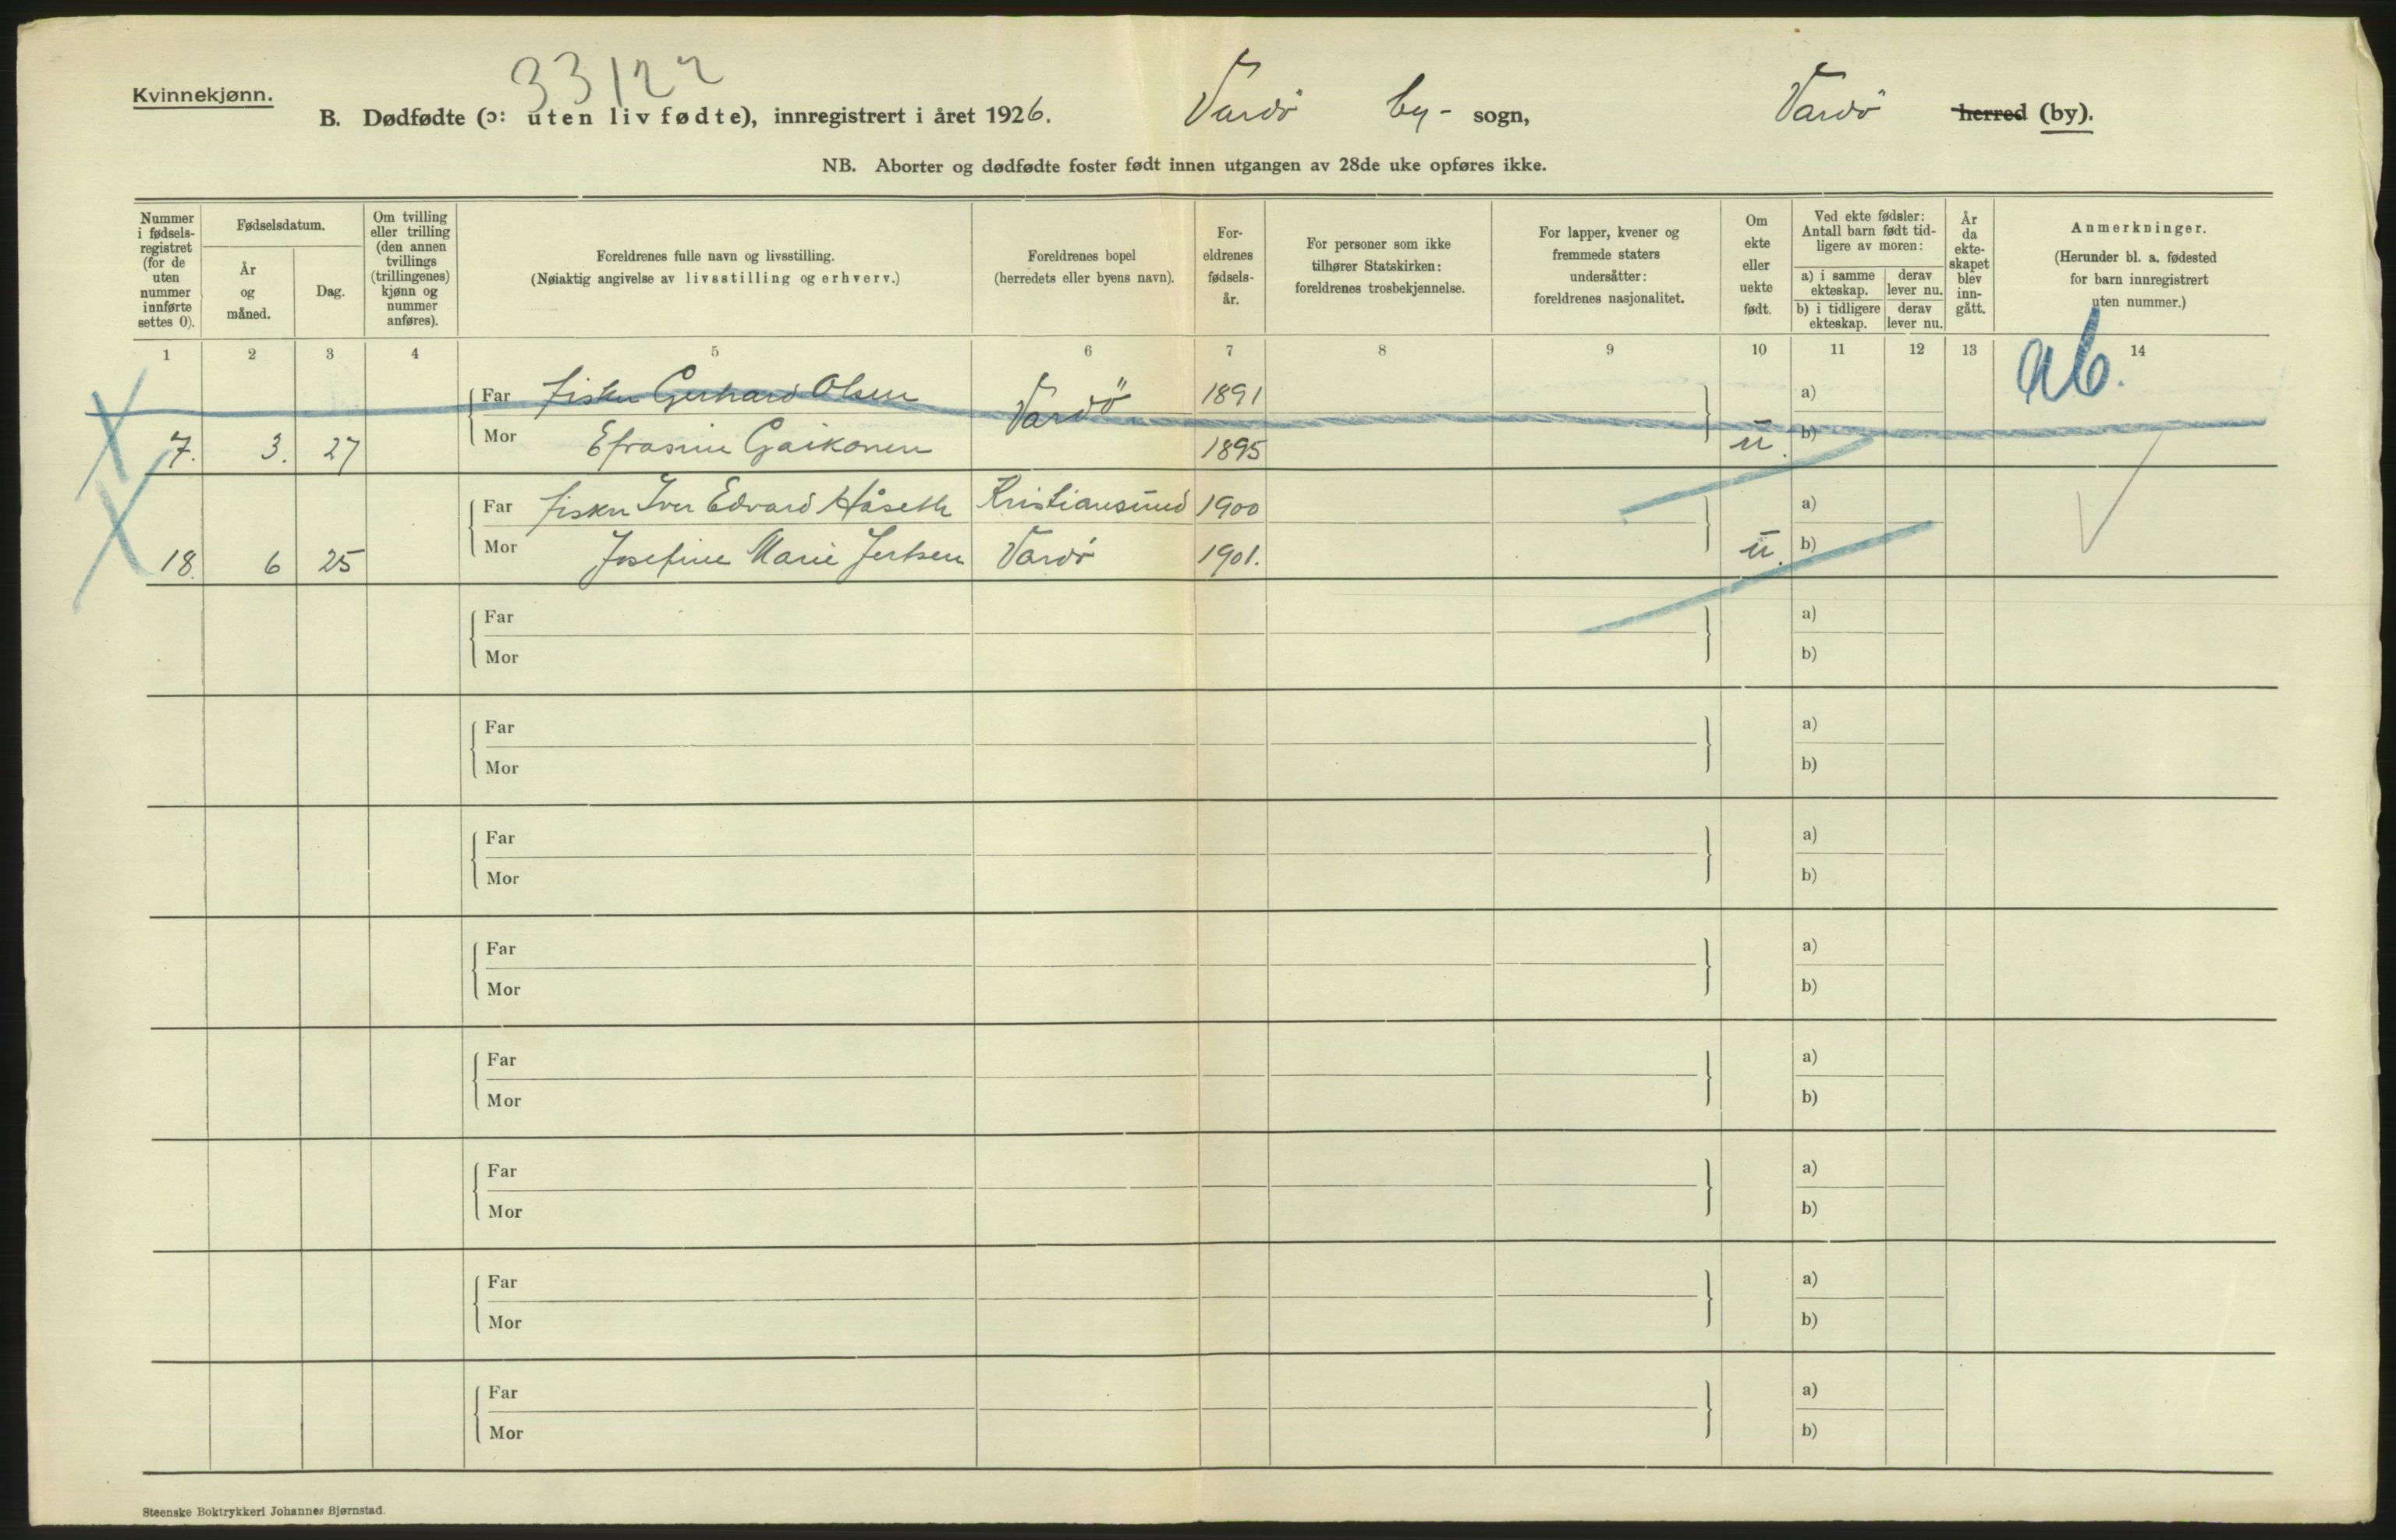 Kvinnekjønn.
33122
B. Dødfødte (ɔ: uten liv fødte), innregistrert i året 1926. Vardö by- sogn, Vardö herred (by).
NB. Aborter og dødfødte foster født innen utgangen av 28de uke opføres ikke.
Nummer
i fødsels-
registret
(for de
uten
nummer
innførte
settes 0).
Fødselsdatum.
År
og
måned.
Dag.
Om tvilling
eller trilling
(den annen
tvillings
(trillingenes)
kjønn og
nummer
anføres).
Foreldrenes fulle navn og livsstilling.
(Nøiaktig angivelse av livsstilling og erhverv.)
Foreldrenes bopel
(herredets eller byens navn).
For-
eldrenes
fødsels-
år.
For personer som ikke
tilhører Statskirken:
foreldrenes trosbekjennelse.
For lapper, kvener og
fremmede staters
undersåtter:
foreldrenes nasjonalitet.
Om
ekte
eller
uekte
født.
Ved ekte fødsler:
Antall barn født tid-
ligere av moren:
a) i samme
ekteskap.
derav
lever nu.
b) i tidligere
ekteskap.
derav
lever nu.
År
da
ekte-
skapet
blev
inn-
gått.
Anmerkninger.
(Herunder bl. a. fødested
for barn innregistrert
uten nummer.)
1 2 3 4 5 6 7 8 9 10 11 12 13 14
ab.
Far fisker Gerhard Olsen Vardö 1891 a)
7. 3. 27 Mor Efrosine Gaikonen 1895 u. b)
Far fisker Iver Edvard Håseth Kristiansund 1900 a)
18. 6 25 Mor Josefine Marie Jertsen Vardö 1901. u. b)
Far a)
Mor b)
Far a)
Mor b)
Far a)
Mor b)
Far a)
Mor b)
Far a)
Mor b)
Far a)
Mor b)
Far a)
Mor b)
Far a)
Mor b)
Steenske Boktrykkeri Johannes Bjørnstad.